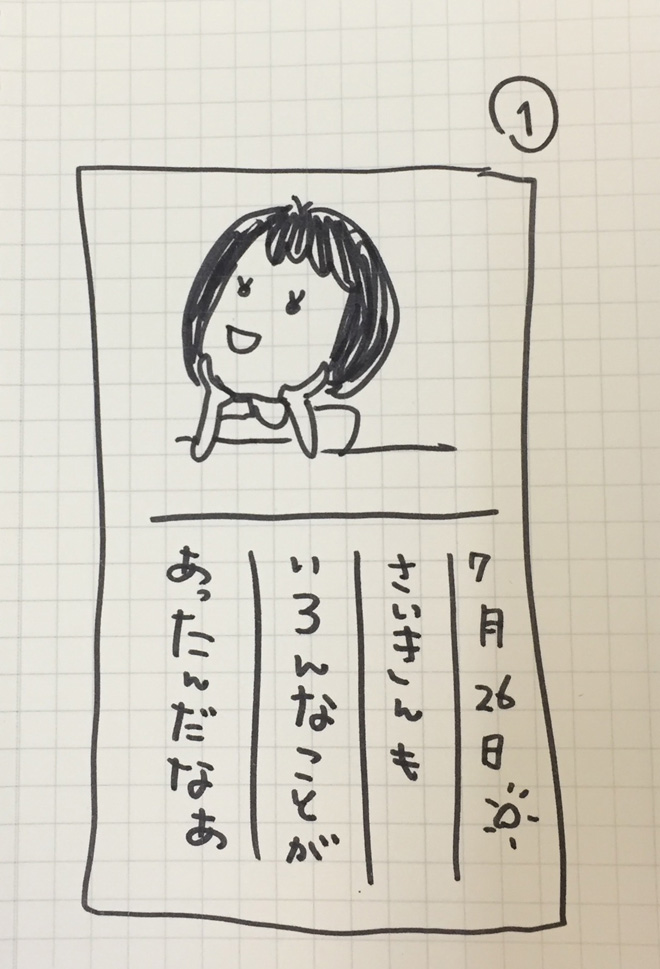 ①
7月26日
さいきんも
いろんなことが
あったんだなぁ